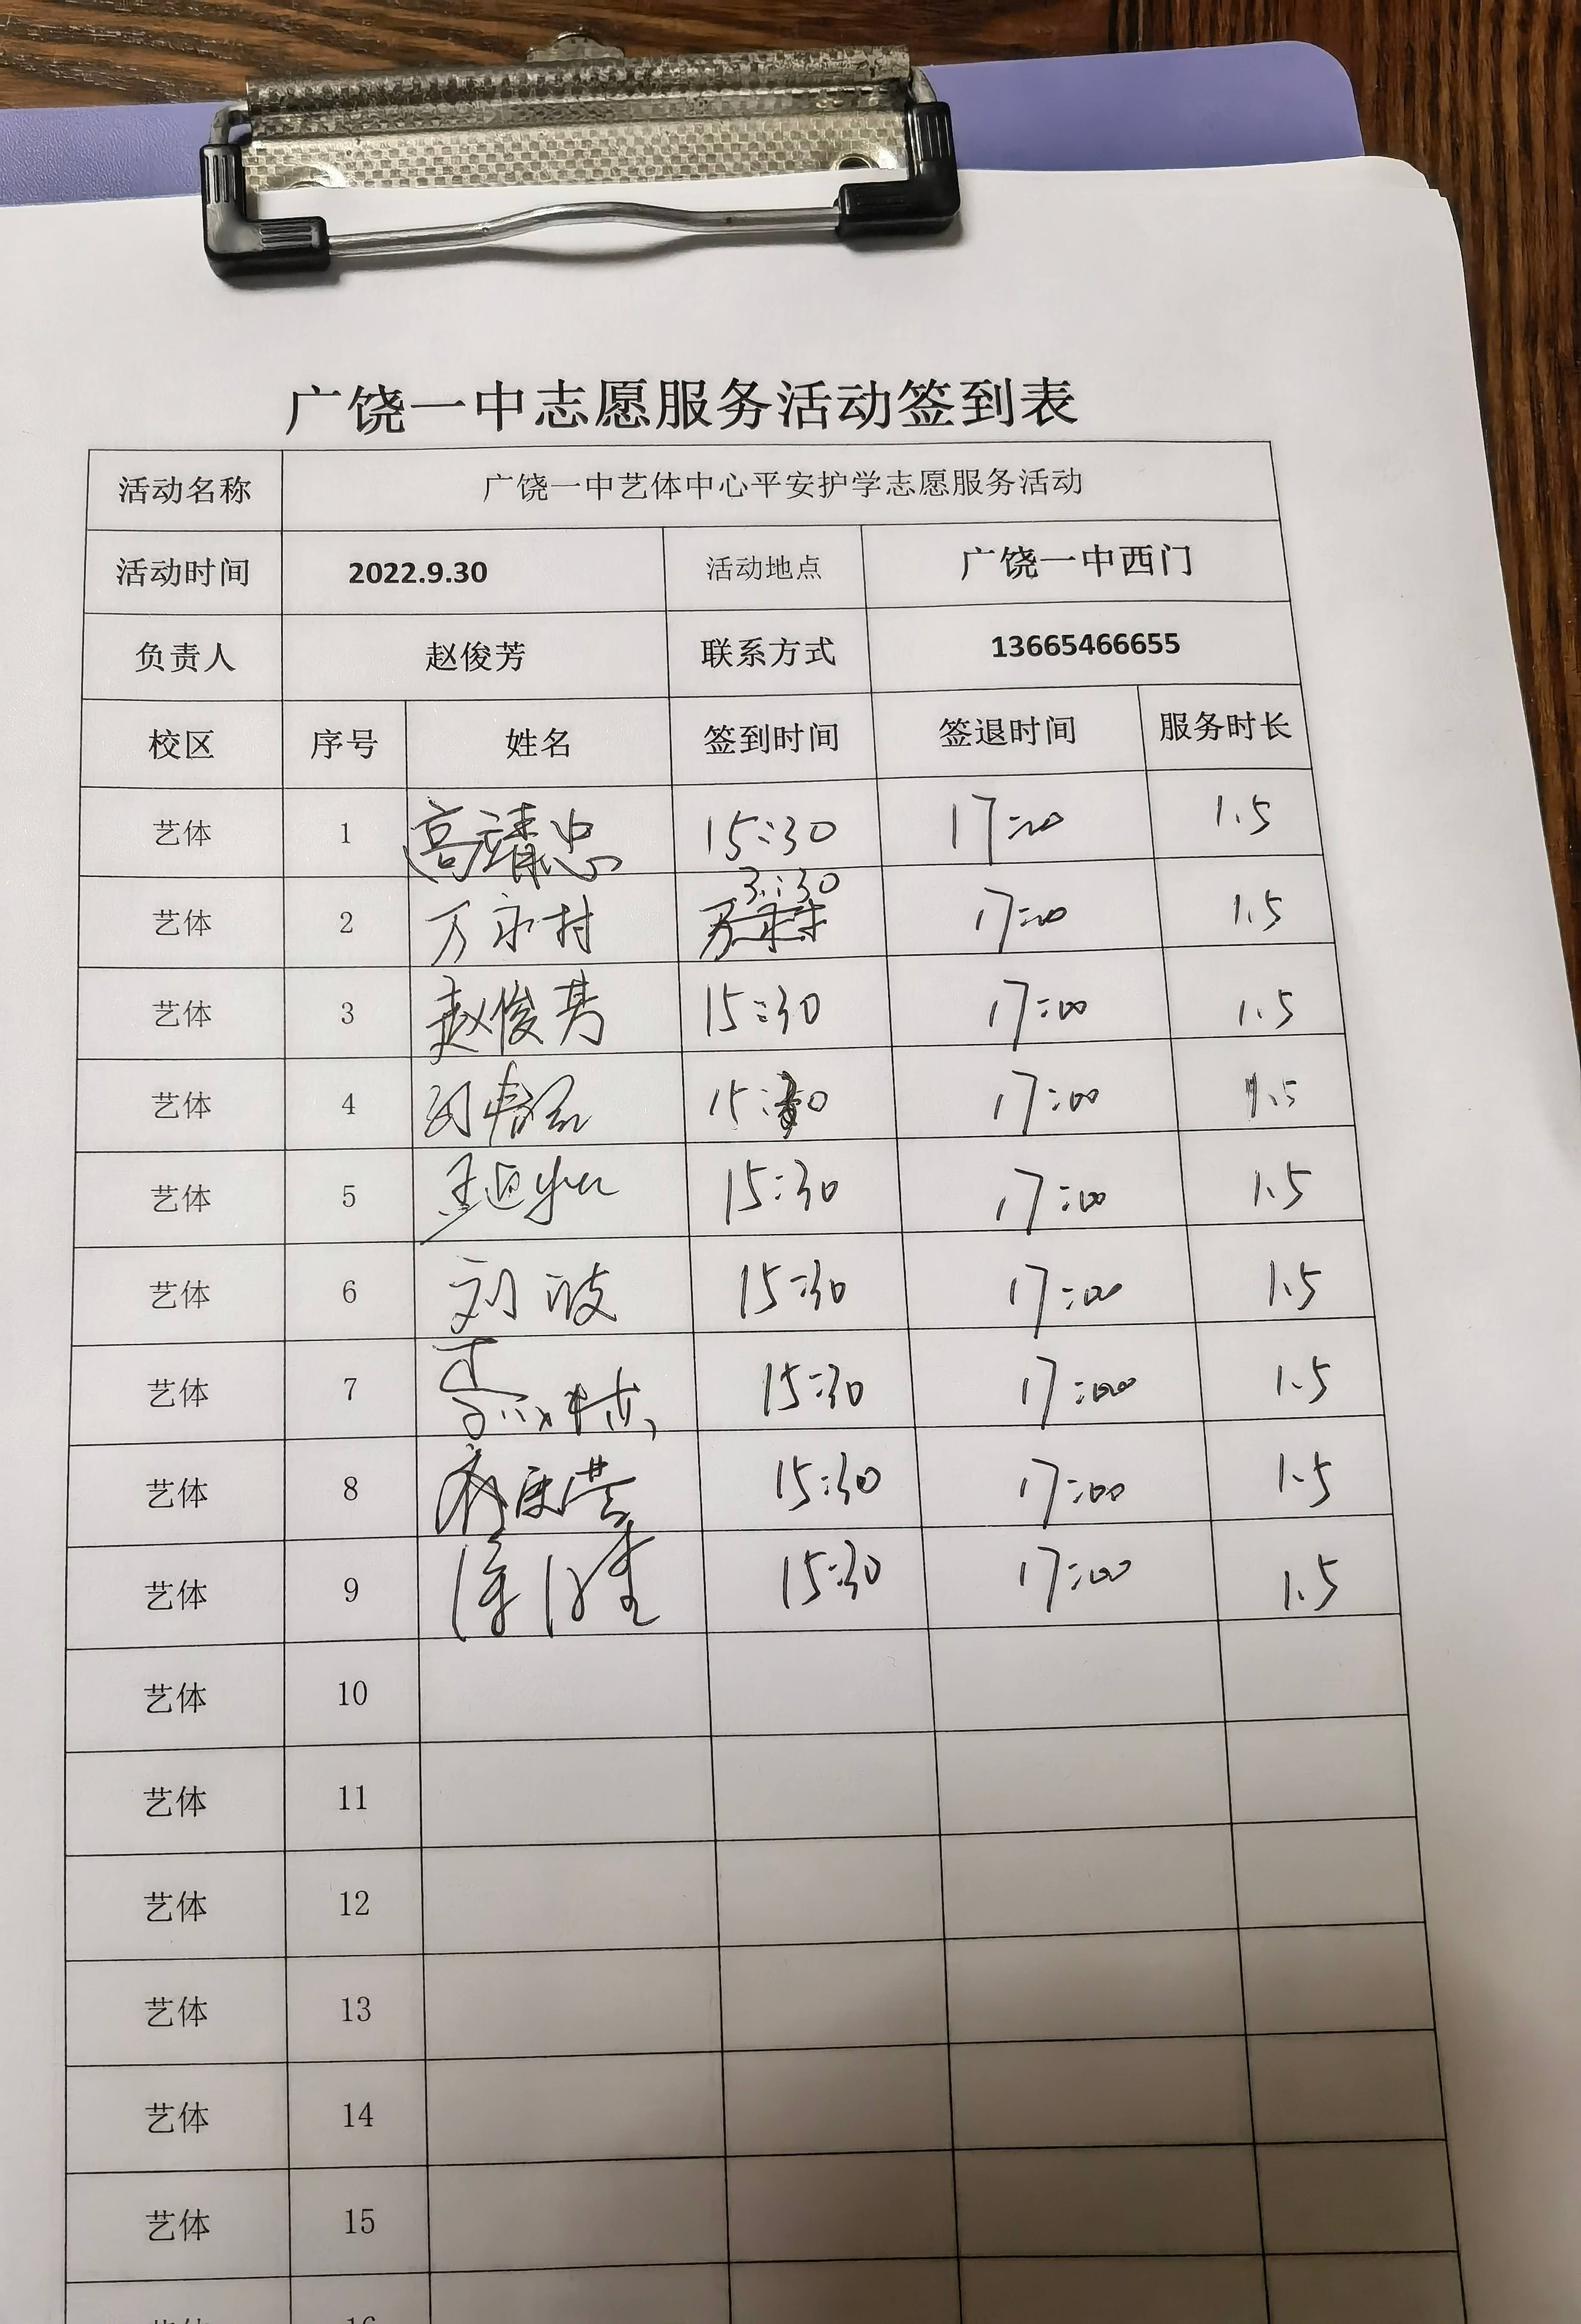 广饶一中志愿服务活动签到表
活动名称 广饶一中艺体中心平安护学志愿服务活动
活动时间 2022.9.30 活动地点 广饶一中西门
负责人 赵俊芳 联系方式 13665466655
校区 序号 姓名 签到时间 签退时间 服务时长
艺体 1 高靖忠 15:30 17:00 1.5
3:30
艺体 2 万永村 17:00 1.5
艺体 3 赵俊芳 15:30 17:00 1.5
艺体 4 15:30 17:00 1.5
艺体 5 15:30 17:00 1.5
艺体 6 刘波 15:30 17:00 1.5
艺体 7 15:30 17:00 1.5
艺体 8 15:30 17:00 1.5
艺体 9 15:30 17:00 1.5
艺体 10
艺体 11
艺体 12
艺体 13
艺体 14
艺体 15